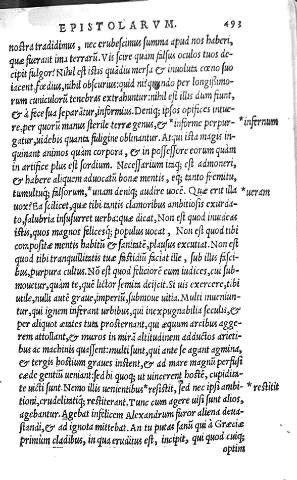 EPISTOLARVM. 493
nostra tradidimus, nec erubescimus summa apud nos haberi,
quæ fuerant ima terrarũ. Vis scire quàm falsus oculos tuos de-
cipit fulgor? Nihil est istis quãdiu mersa & inuoluta cœno suo
iacent, fœdius, nihil obscurius: quid ni? quando per longissimo-
rum cuniculorũ tenebras extrahuntur: nihil est illis dum fiunt,
& à fece sua separãtur, informius. Deniq; ipsos opifices intue-
re, per quorũ manus sterile terræ genus, & *informe perpur- *infernum
gatur, uidebis quanta fuligine oblinantur. At qui ista magis in-
quinant animos quàm corpora, & in possessore eorum quàm
in artifice plus est sordium. Necessarium itaq; est admoneri,
& habere aliquem aduocatũ bonæ mentis, eq; tanto fremitu,
tumultuq; falsorum, *unam deniq; audire uocẽ. Quæ erit illa *ueram
uox? Ea scilicet, quæ tibi tantis clamoribus ambitiosis exurda-
to, salubria insusurret uerba: quæ dicat, Non est quod inuideas
istis, quos magnos felicesq; populus uocat, Non est quod tibi
compositæ mentis habitũ & sanitatẽ, plausus excutiat. Non est
quod tibi tranquillitatis tuæ fastidiũ faciat ille, sub illis fasci-
bus, purpura cultus. Nõ est quod feliciorẽ eum iudices, cui sub-
mouetur, quàm te, quẽ lictor semita deijcit. Si uis exercere, tibi
utile, nulli autẽ graue, imperiũ, submoue uitia. Multi inueniun-
tur, qui ignem inferant urbibus, qui inexpugnabilia seculis, &
per aliquot ætates tuta prosternant, qui æquum arcibus agge-
rem attollant, & muros in mirã altitudinem adductos arieti-
bus ac machinis quassent: multi sunt, qui ante se agant agmina,
& tergis hostium graues instent, & ad mare magnũ perfusi
cæde gentiũ ueniant: sed hi quoq; ut uincerent hostẽ, cupidita-
te uicti sunt. Nemo illis uenientibus *resistit, sed nec ipsi ambi- *restitit
tioni, crudelitatiq; restiterant. Tunc cum agere uisi sunt alios,
agebantur. Agebat infelicem Alexandrum furor aliena deua-
standi, & ad ignota mittebat. An tu putas sanũ qui à Græciæ
primùm cladibus, in qua eruditus est, incipit, qui quod cuiq;
optim